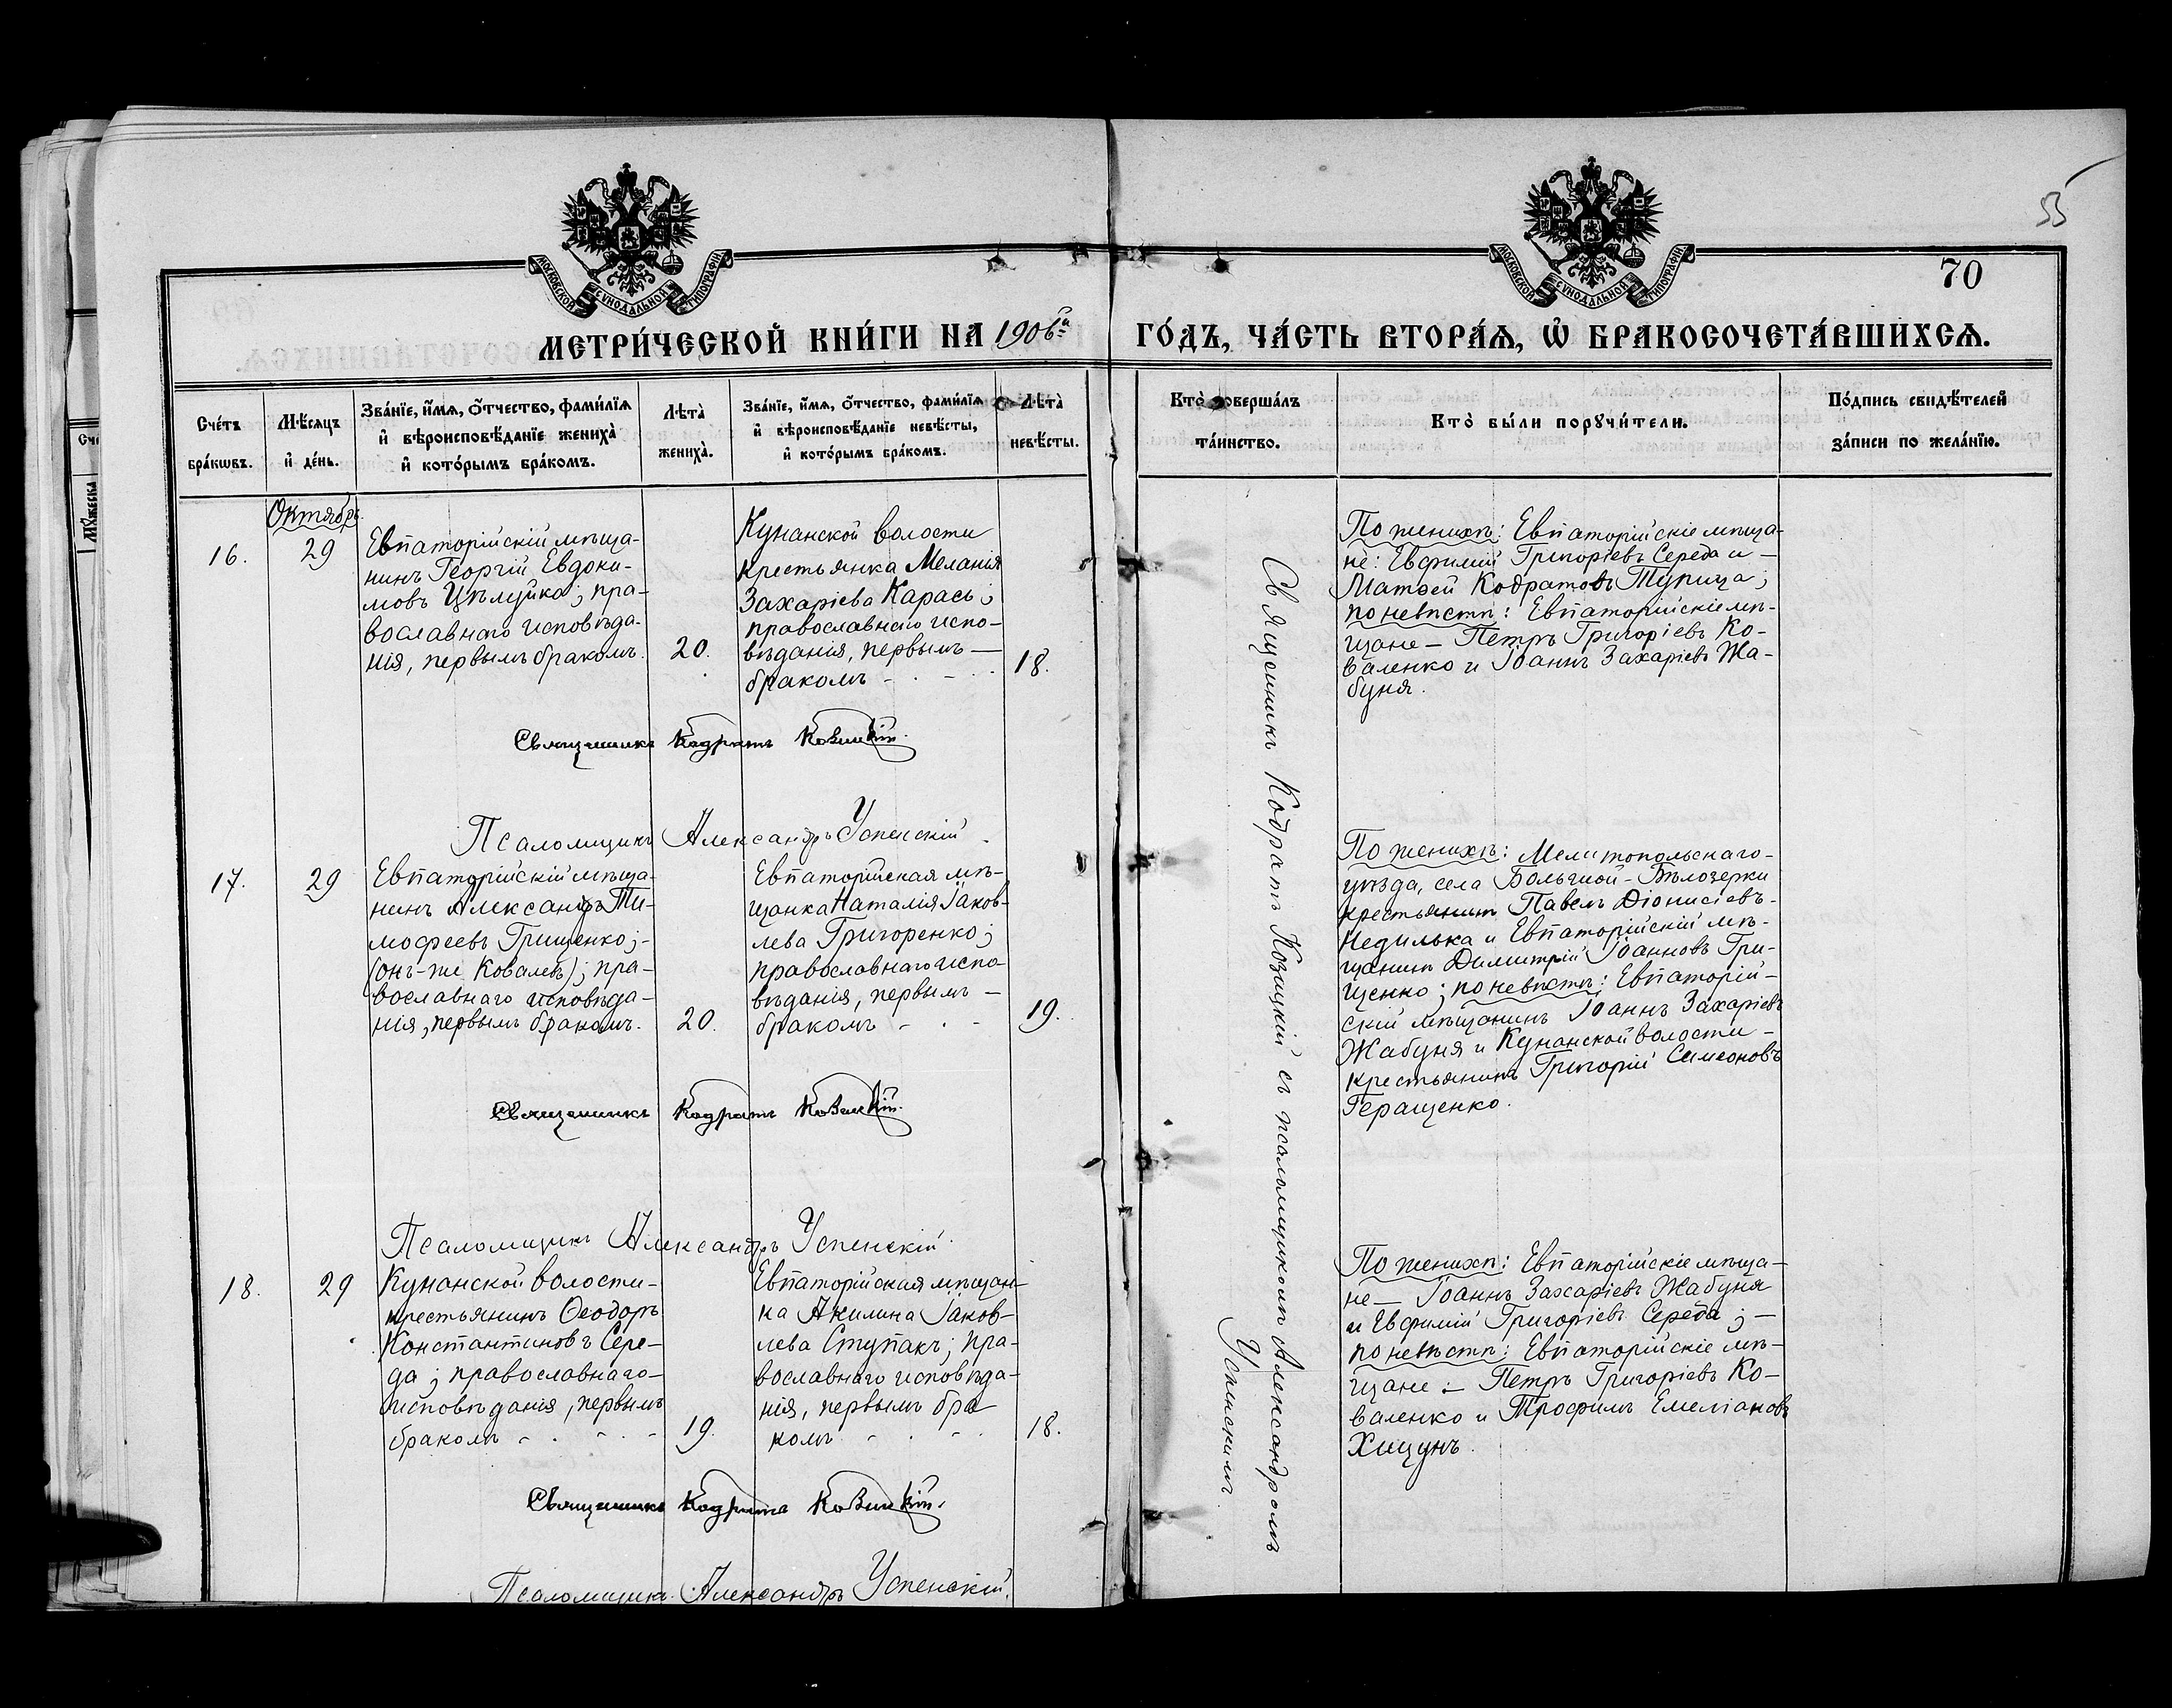 МОСКОВСКОЙ СУНОДАЛЬНОЙ ТИПОГРАФІИ
МОСКОВСКОЙ СУНОДАЛЬНОЙ ТИПОГРАФІИ
55
70
МЕТРИ́ЧЕСКОЙ КНИ́ГИ НА 1906й ГО́ДЪ, ЧА́СТЬ ВТОРА́Ѧ, Ѡ҆ БРАКОСОЧЕТА́ВШИХСѦ.
Сче́тъ
бра́кѡвъ.
Мѣ́сѧцъ
и҆ де́нь.
Зва́нїе, и҆́мѧ, ѻ҆́тчество, фами́лїѧ
и҆ вѣроисповѣ́данїе жениха̀
и҆ кото́рымъ бра́комъ.
Лѣта̀
жениха̀.
Зва́нїе, и҆́мѧ, ѻ҆́тчество, фами́лїѧ
и҆ вѣроисповѣ́данїе невѣ́сты,
и҆ кото́рымъ бра́комъ.
Лѣта̀
невѣ́сты.
Кто̀ соверша́лъ
та́инство.
Кто̀ бы́ли порꙋчи́тели.
По́дпись свидѣ́телей
за́писи по жела́нїю.
Октябрь.
16.
29
Евпаторійскій мѣща-
нинъ Георгій Евдоки-
мовъ Цѣлуйко; пра-
вославнаго исповѣда-
нія, первымъ бракомъ.
20.
Кунанской волости
крестьянка Меланія
Захаріева Карась;
православнаго испо-
вѣданія, первымъ —
бракомъ
18.
По женихѣ: Евпаторійскіе мѣща-
не: Евфимій Григорьевъ Середа и —
Матѳей Кодратовъ Тупица;
по невѣстѣ: Евпаторійскіе мѣ-
щане — Петръ Григоріевъ Ко-
валенко и Іоаннъ Захаріевъ Жа-
буня.
Священникъ Кодратъ Козицкій.
Псаломщикъ Александръ Успенскій
17.
29
Евпаторійскій мѣща-
нинъ Александръ Ти-
мофеевъ Грищенко; -
(онъ-же Ковалевъ); пра-
вославнаго исповѣда-
нія, первымъ бракомъ.
20.
Евпаторійская мѣ-
щанка Наталія Іаков-
лева Григоренко;
православнаго испо-
вѣданія, первымъ —
бракомъ
19.
По женихѣ: Мелитопольскаго -
уѣзда, села Большой-Бѣлозерки
крестьянинъ Павелъ Діонисіевъ -
Недилька и Евпаторійскій мѣ-
щанинъ Димитрій Іоанновъ Гри-
щенко; по невѣстѣ: Евпаторій-
скій мѣщанинъ Іоаннъ Захаріевъ
Жабуня и Кунанской волости —
крестьянинъ Григорій Симеоновъ
Геращенко.
Священникъ Кодратъ Козицкій.
Псаломщикъ Александръ Успенскій.
18.
29
Кунанской волости -
крестьянинъ Ѳеодоръ
Константиновъ Сере-
да; православнаго -
исповѣданія, первымъ
бракомъ
19.
Евпаторійская мѣщан-
ка Акилина Іаков-
лева Ступакъ; пра-
вославнаго исповѣда-
нія, первымъ бра
комъ
18.
По женихѣ: Евпаторійскіе мѣща-
не — Іоаннъ Захаріевъ Жабуня
и Евфимій Григоріевъ Середа; —
по невѣстѣ: Евпаторійскіе мѣ-
щане: — Петръ Григоріевъ Ко-
валенко и Трофимъ Емеліановъ
Хицунъ.
Священникъ Кодратъ Козицкій.
Псаломщикъ Александръ Успенскій.
Священникъ Кодратъ Козицкій съ псаломщикомъ Александромъ
Успенскимъ.